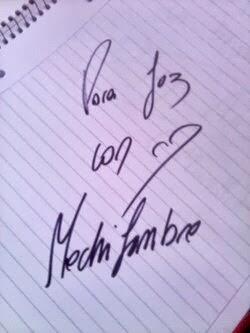 Para Joz
con
Mechi Lambre